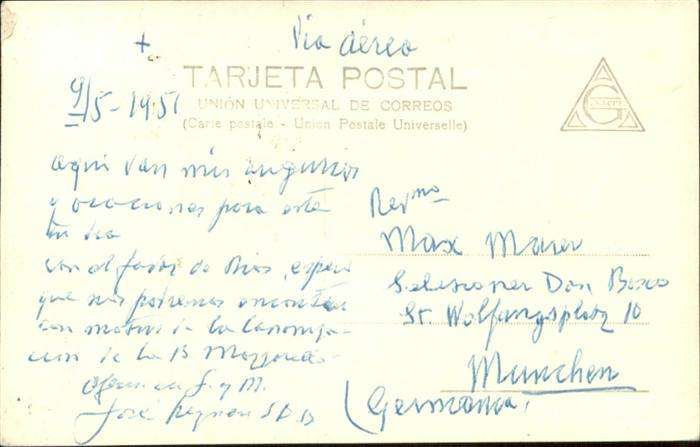 + Via aérea
TARJETA POSTAL
UNIÓN UNIVERSAL DE CORREOS
(Carte postale - Union Postale Universelle)
G
9/5-1951
aqui van mis
y oraciones para este
tu dia
con el favor de Dios, espero
que nos podremos encontrar
con motivo de la Canoniza-
cion de la B Mazzarello
J. y M.
José SDB
Revmo
Max Maier
Salesianer Don Bosco
St. Wolfgangsplatz 10
München
(Germania)